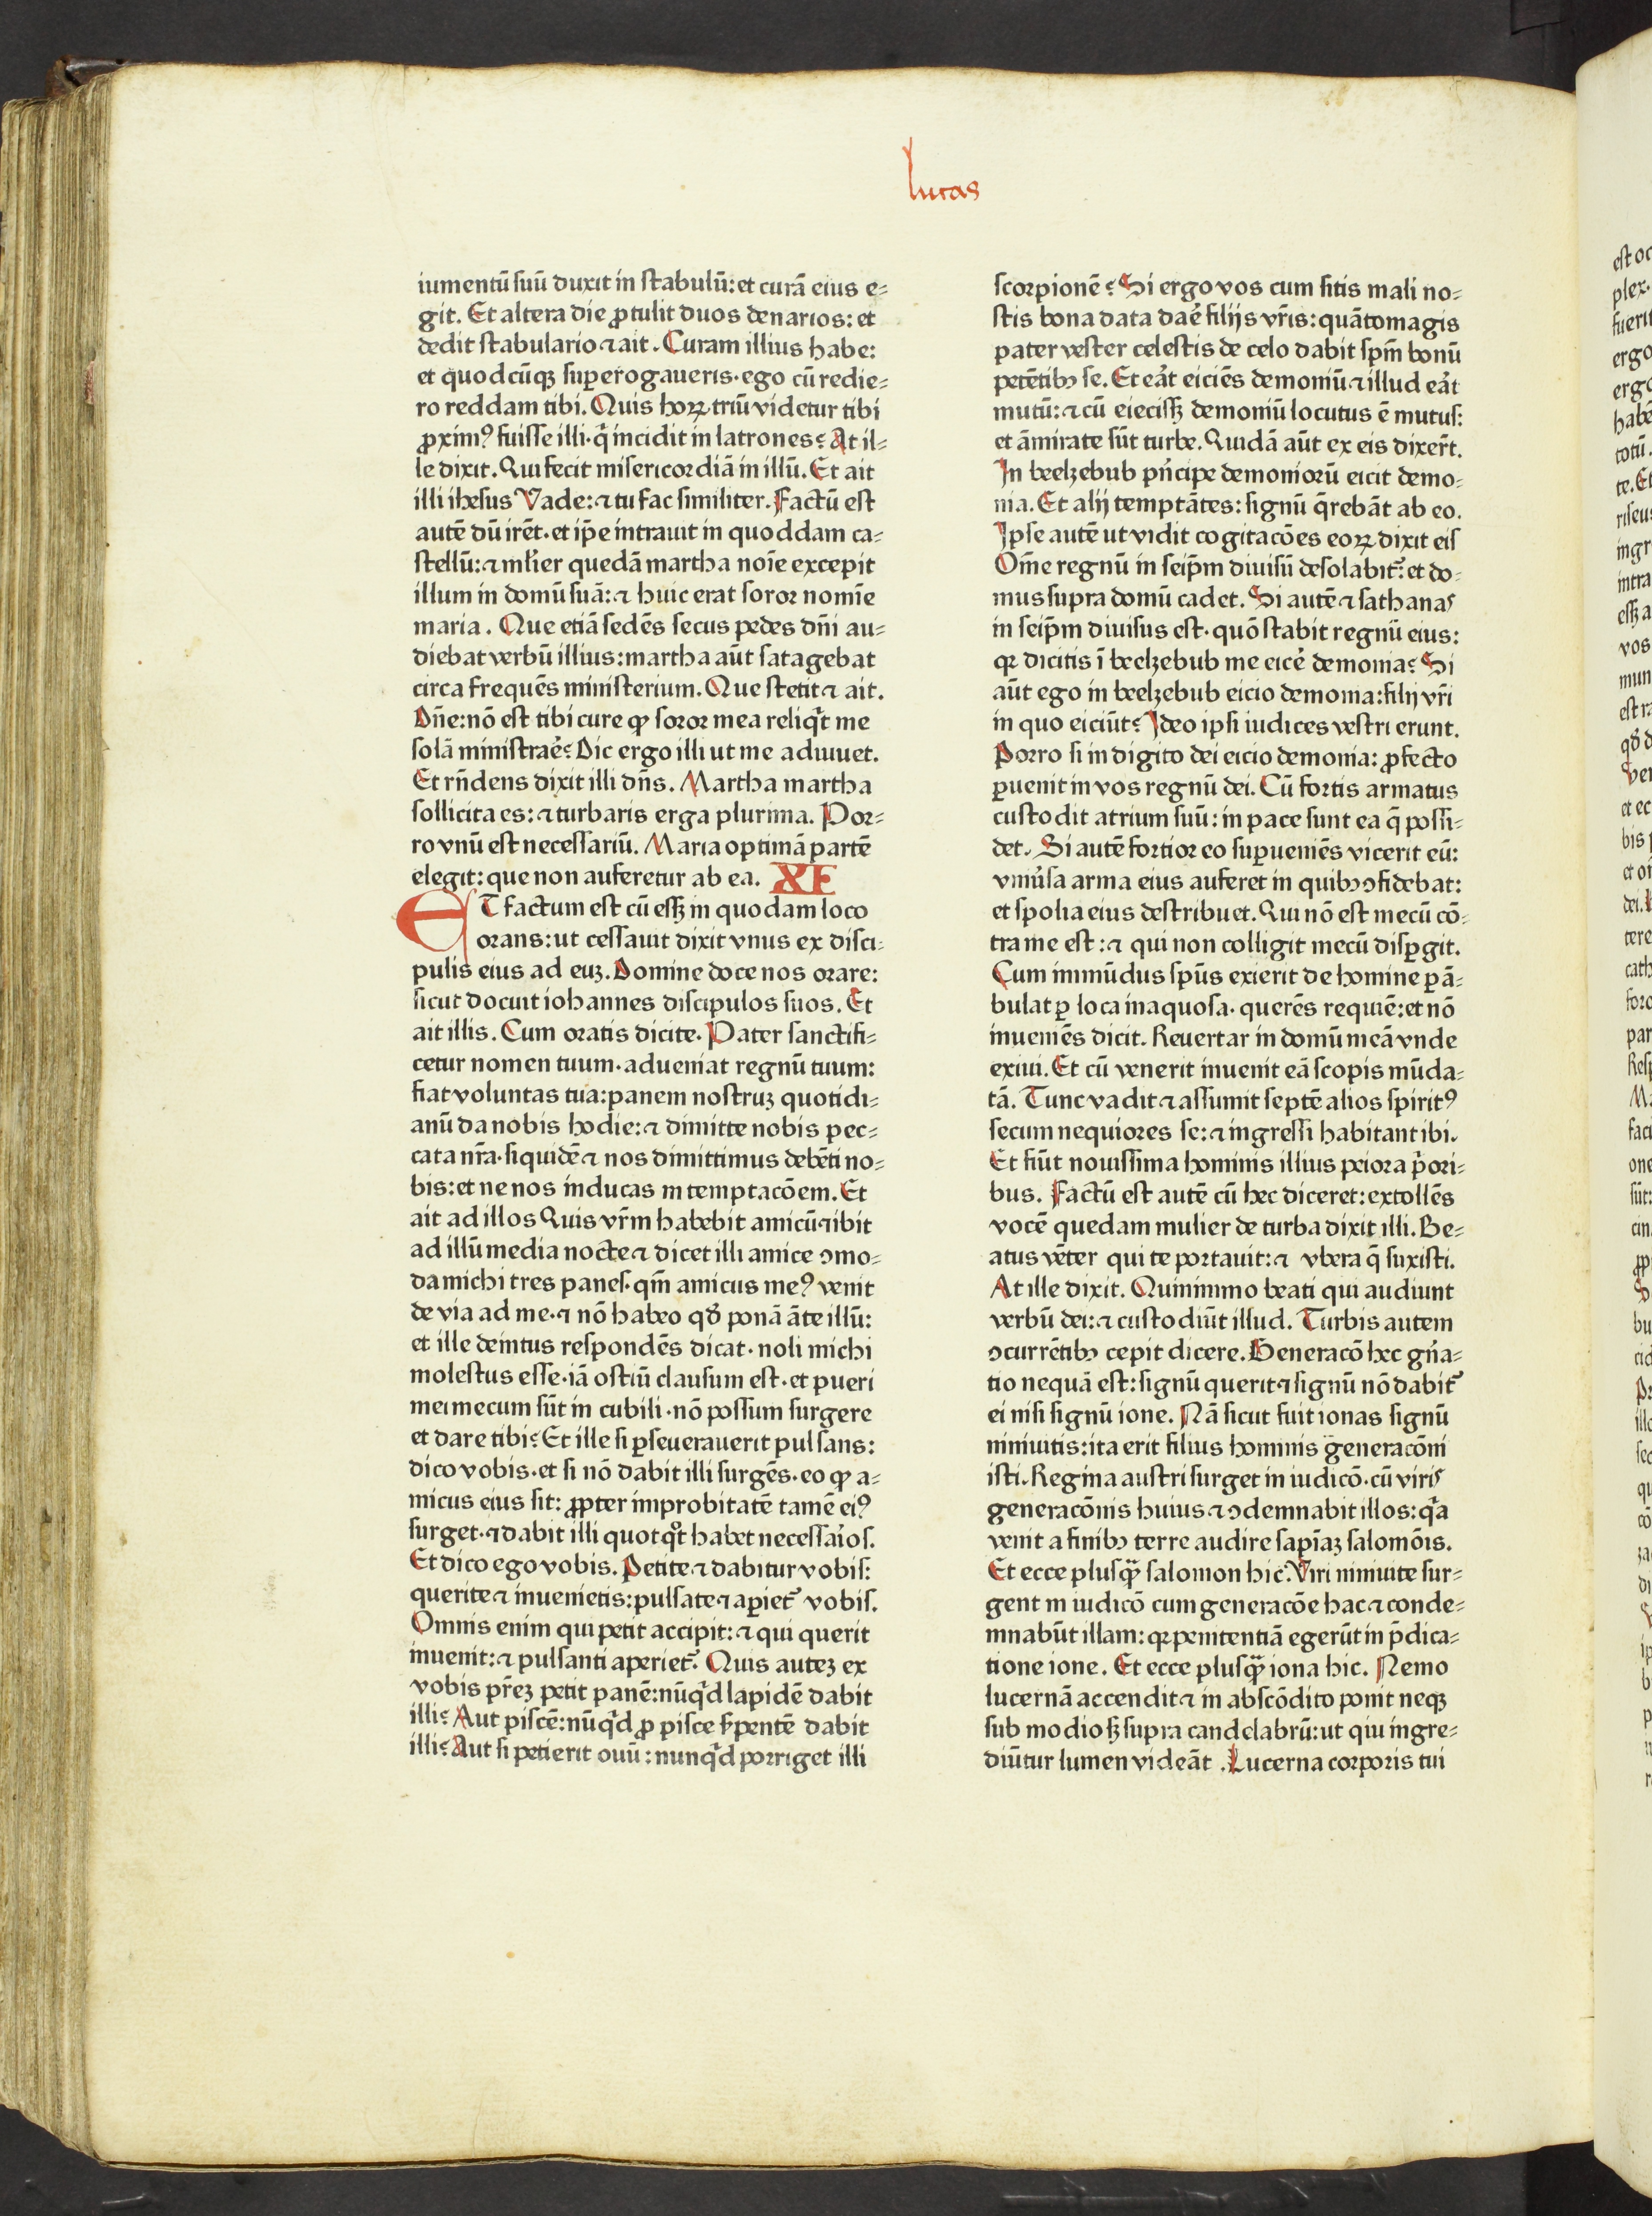 lucas
iumentū suū duxit in stabulū: et curā eius e-
git. Et altera die ꝓtulit duos denarios: et
dedit stabulario ⁊ ait. Curam illius habe:
et quodcūqꝫ suꝑerogaueris· ego cū redie-
ro reddam tibi. Quis hoꝝ triū videtur tibi
ꝓximꝰ fuisse illi· q̄ incidit in latrones? At il-
le dixit. Qui fecit misericordiā in illū. Et ait
illi ihesus Vade: ⁊ tu fac similiter. Factū est
autē dū irēt· et ip̄e intrauit in quoddam ca-
stellū: ⁊ ml̓ier quedā martha noīe excepit
illum in domū suā: ⁊ huic erat soror nomīe
maria. Que etiā sedēs secus pedes dn̄i au-
diebat verbū illius: martha aūt satagebat
circa frequēs ministerium. Que stetit ⁊ ait.
Dn̄e: nō est tibi cure ꝙ soror mea reliq̇t me
solā ministrae᷒? Dic ergo illi ut me adiuuet.
Et rn̄dens dixit illi dn̄s. Martha martha
sollicita es: ⁊ turbaris erga plurima. Por-
ro vnū est necessariū. Maria optimā partē
elegit: que non auferetur ab ea. XI
ET factum est cū essꝫ in quodam loco
orans: ut cessauit dixit vnus ex disci-
pulis eius ad euꝫ. Domine doce nos orare:
sicut docuit iohannes discipulos suos. Et
ait illis. Cum oratis dicite. Pater sanctifi-
cetur nomen tuum· adueniat regnū tuum:
fiat voluntas tua: panem nostruꝫ quotidi-
anū da nobis hodie: ⁊ dimitte nobis pec-
cata nr̄a· siquidē ⁊ nos dimittimus debēti no-
bis: et ne nos inducas in temptacōem. Et
ait ad illos Quis vr̄m habebit amicū ⁊ ibit
ad illū media nocte ⁊ dicet illi amice ↄmo-
da michi tres panes· qm̄ amicus meꝰ venit
de via ad me· ⁊ nō habeo qd̓ ponā āte illū:
et ille deintus respondēs dicat· noli michi
molestus esse· iā ostiū clausum est· et pueri
mei mecum sūt in cubili· nō possum surgere
et dare tibi? Et ille si ꝑseuerauerit pulsans:
dico vobis· et si nō dabit illi surgēs· eo ꝙ a-
micus eius sit: ꝓpter improbitatē tamē eiꝰ
surget· ⁊ dabit illi quotqͦt habet necessaı̓os.
Et dico ego vobis. Petite ⁊ dabitur vobis:
querite ⁊ inuenietis: pulsate ⁊ aꝑiet᷑ vobis.
Omnis enim qui petit accipit: ⁊ qui querit
inuenit: ⁊ pulsanti aperiet᷑. Quis auteꝫ ex
vobis pr̄eꝫ petit panē: nūq̇d lapidē dabit
illi? Aut piscē: nūq̇d ꝓ pisce s̓pentē dabit
illi? Aut si petierit ouū: nunq̇d porriget illi
scorpionē? Si ergo vos cum sitis mali no-
stis bona data dae᷒ filijs vr̄is: quātomagis
pater vester celestis de celo dabit spm̄ bonū
petētibꝫ se. Et ea᷒t eiciēs demoniū ⁊ illud ea᷒t
mutū: ⁊ cū eiecissꝫ demoniū locutus ē mutus:
et āmirate sūt turbe. Quidā aūt ex eis dixer̄t.
In beelzebub pn̓cipe demoniorū eicit demo-
nia. Et alij temptātes: signū q̄rebāt ab eo.
Ipse autē ut vidit cogitacōes eoꝝ dixit eis
Om̄e regnū in seip̄m diuisū desolabit᷑: et do-
mus supra domū cadet. Si autē ⁊ sathanas
in seip̄m diuisus est· quō stabit regnū eius:
qꝛ dicitis ī beelzebub me eice᷒ demonia? Si
aūt ego in beelzebub eicio demonia: filij vr̄i
in quo eiciūt? Ideo ipsi iudices vestri erunt.
Porro si in digito dei eicio demonia: ꝓfecto
ꝑuenit in vos regnū dei. Cū fortis armatus
custodit atrium suū: in pace sunt ea q̄ possi-
det. Si autē fortior eo suꝑueniēs vicerit eū:
vniu᷒sa arma eius auferet in quibꝫ ↄfidebat:
et spolia eius destribuet. Qui nō est mecū cō-
tra me est: ⁊ qui non colligit mecū disꝑgit.
Cum immūdus spūs exierit de homine ꝑā-
bulat ꝑ loca inaquosa· querēs requiē: et nō
inueniēs dicit. Reuertar in domū meā vnde
exiui. Et cū venerit inuenit eā scopis mūda-
tā. Tunc vadit ⁊ assumit septē alios spiritꝰ
secum nequiores se: ⁊ ingressi habitant ibi.
Et fiūt nouissima hominis illius peiora p̓ori-
bus. Factū est autē cū hec diceret: extollēs
vocē quedam mulier de turba dixit illi. Be-
atus vēter qui te portauit: ⁊ vbera q̄ suxisti.
At ille dixit. Quinimmo beati qui audiunt
verbū dei: ⁊ custodiūt illud. Turbis autem
ↄcurrētibꝫ cepit dicere. Generacō hec gn̓a-
tio nequā est: signū querit ⁊ signū nō dabit᷑
ei nisi signū ione. Nā sicut fuit ionas signū
niniuitis: ita erit filius hominis generacōni
isti. Regina austri surget in iudicō· cū viris
generacōnis huius ⁊ ↄdemnabit illos: q̓a
venit a finibꝫ terre audire sapīaꝫ salomōis.
Et ecce plusq̄ salomon hic. Viri niniuite sur-
gent in iudicō cum generacōe hac ⁊ conde-
mnabūt illam: qꝛ penitentiā egerūt in p̄dica-
tione ione. Et ecce plusq̄ iona hic. Nemo
lucernā accendit ⁊ in abscōdito ponit neqꝫ
sub modio sꝫ supra candelabrū: ut qui ingre-
diūtur lumen videāt. Lucerna corporis tui